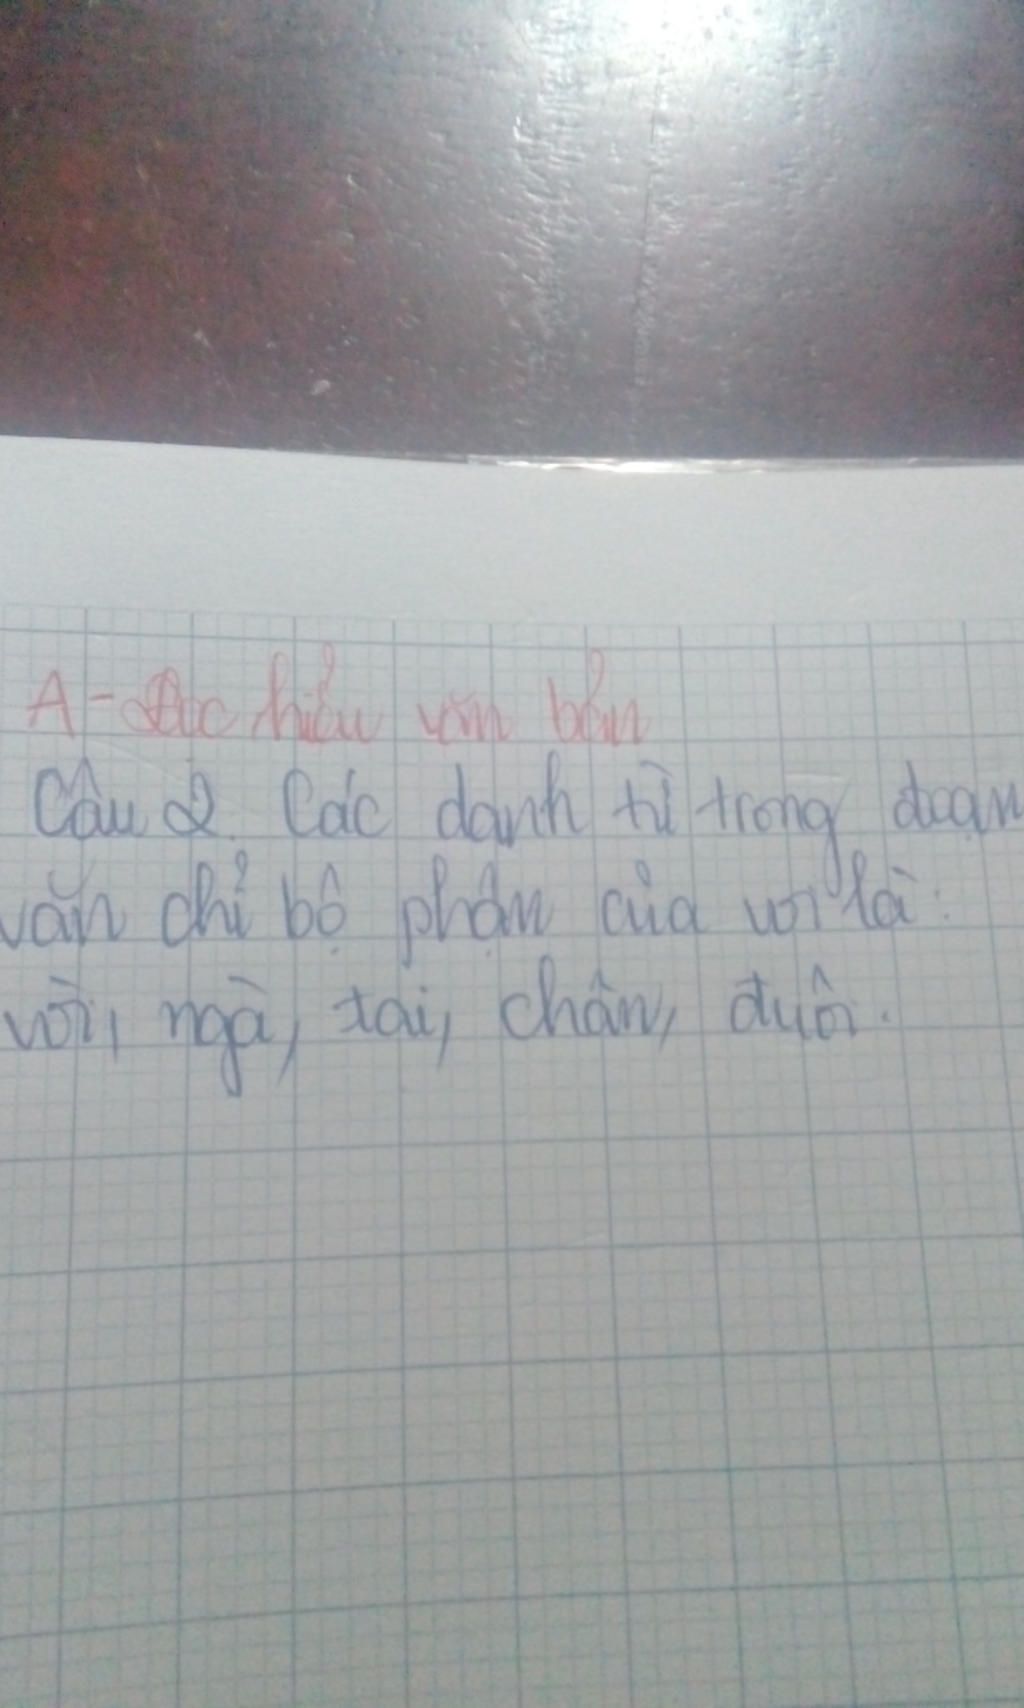 A - Đọc hiểu văn bản
Câu 2. Các danh từ trong đoạn
văn chỉ bộ phận của voi là:
vòi, ngà, tai, chân, đuôi.